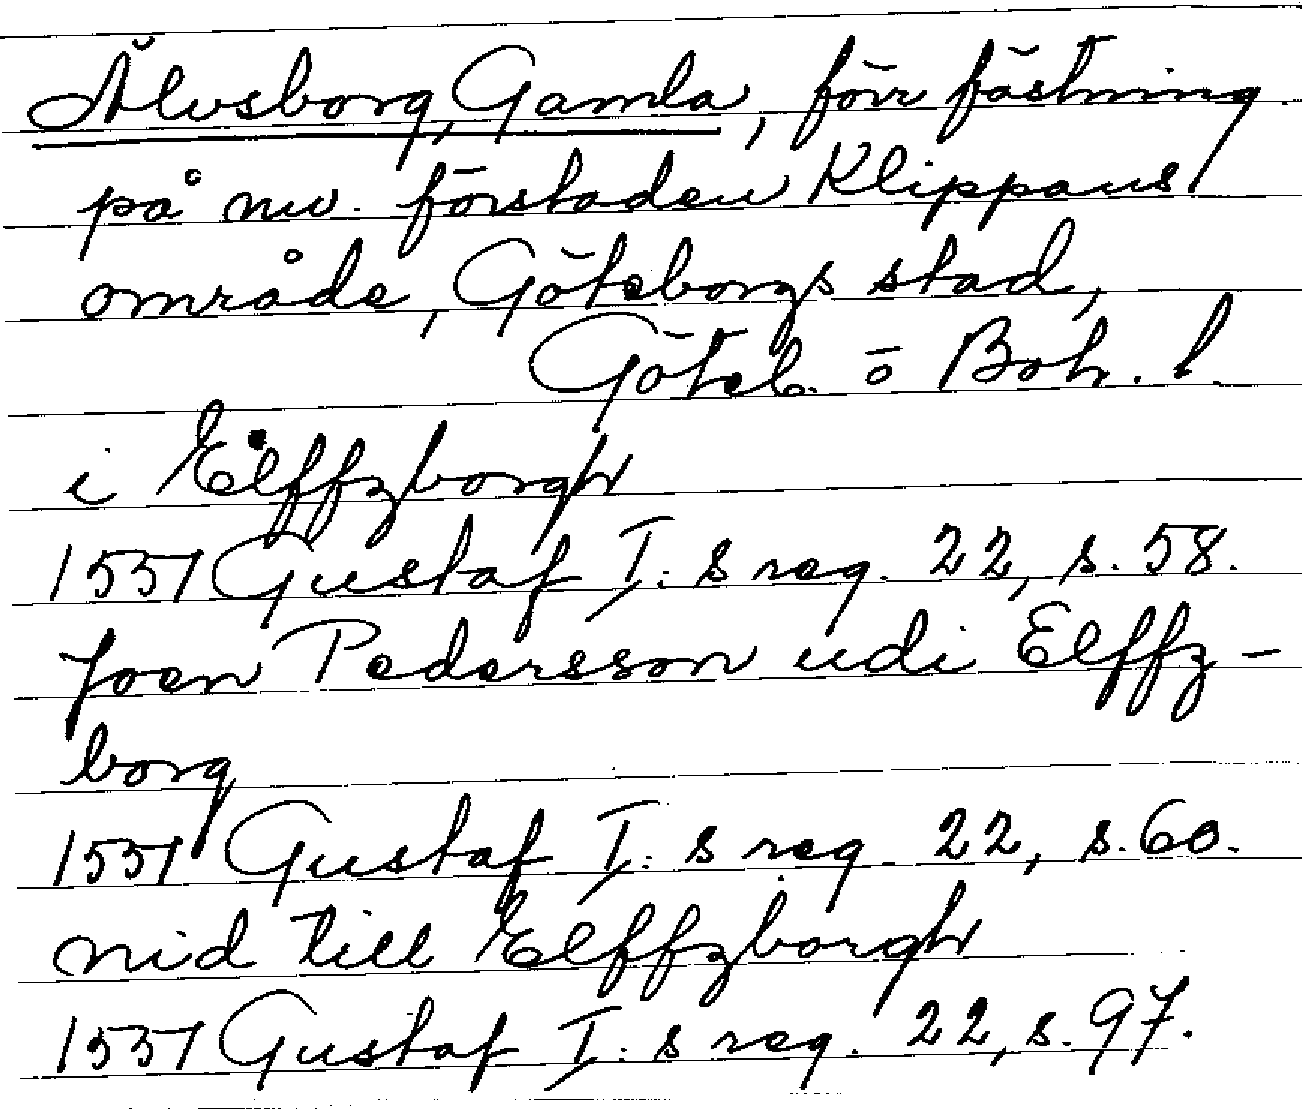 Älvsborg, Gamla, förr fästning
på nuv. förstaden Klippans
område, Göteborgs stad,
Göteb. o Boh. l.
i Elffzborgh
1551 Gustaf I:s reg. 22, s. 58.
Joen Pedersson udi Elffz-
borg
1551 Gustaf I:s reg. 22, s. 60.
nid till Elffzborgh
1551 Gustaf I:s reg. 22, s. 97.